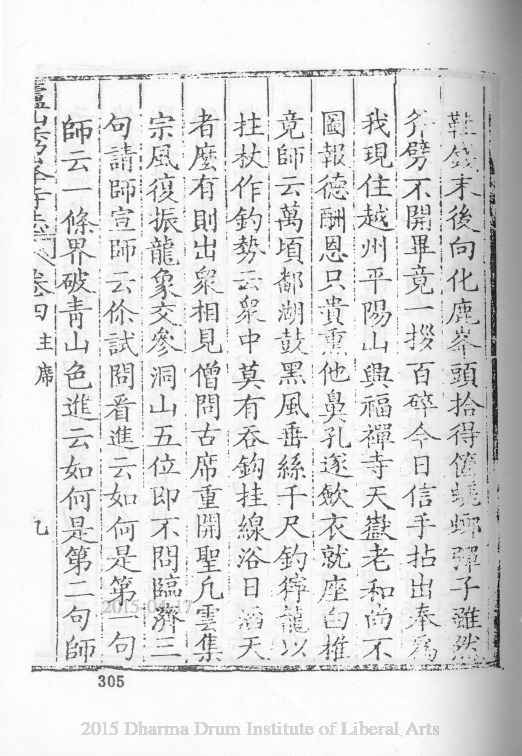 鞋錢末後向化鹿峯頭拾得箇蜣螂彈子雖然
斧劈不開畢竟一拶百碎今日信手拈出奉為
我現住越州平陽山興福禪寺天嶽老和尚不
圖報德酬恩只貴熏他鼻孔遂歛衣就座白椎
竟師云萬頃鄱湖鼓黑風垂絲千尺釣獰龍以
拄杖作釣勢云衆中莫有吞鈎挂線浴日滔天
者麼有則出衆相見僧問古席重開聖凡雲集
宗風復振龍象交參洞山五位即不問臨濟三
句請師宣師云伱試問看進云如何是第一句
師云一條界破青山色進云如何是第二句師
廬山秀峰寺志 卷四 主席 九
305
2015-04-17
2015 Dharma Drum Institute of Liberal Arts